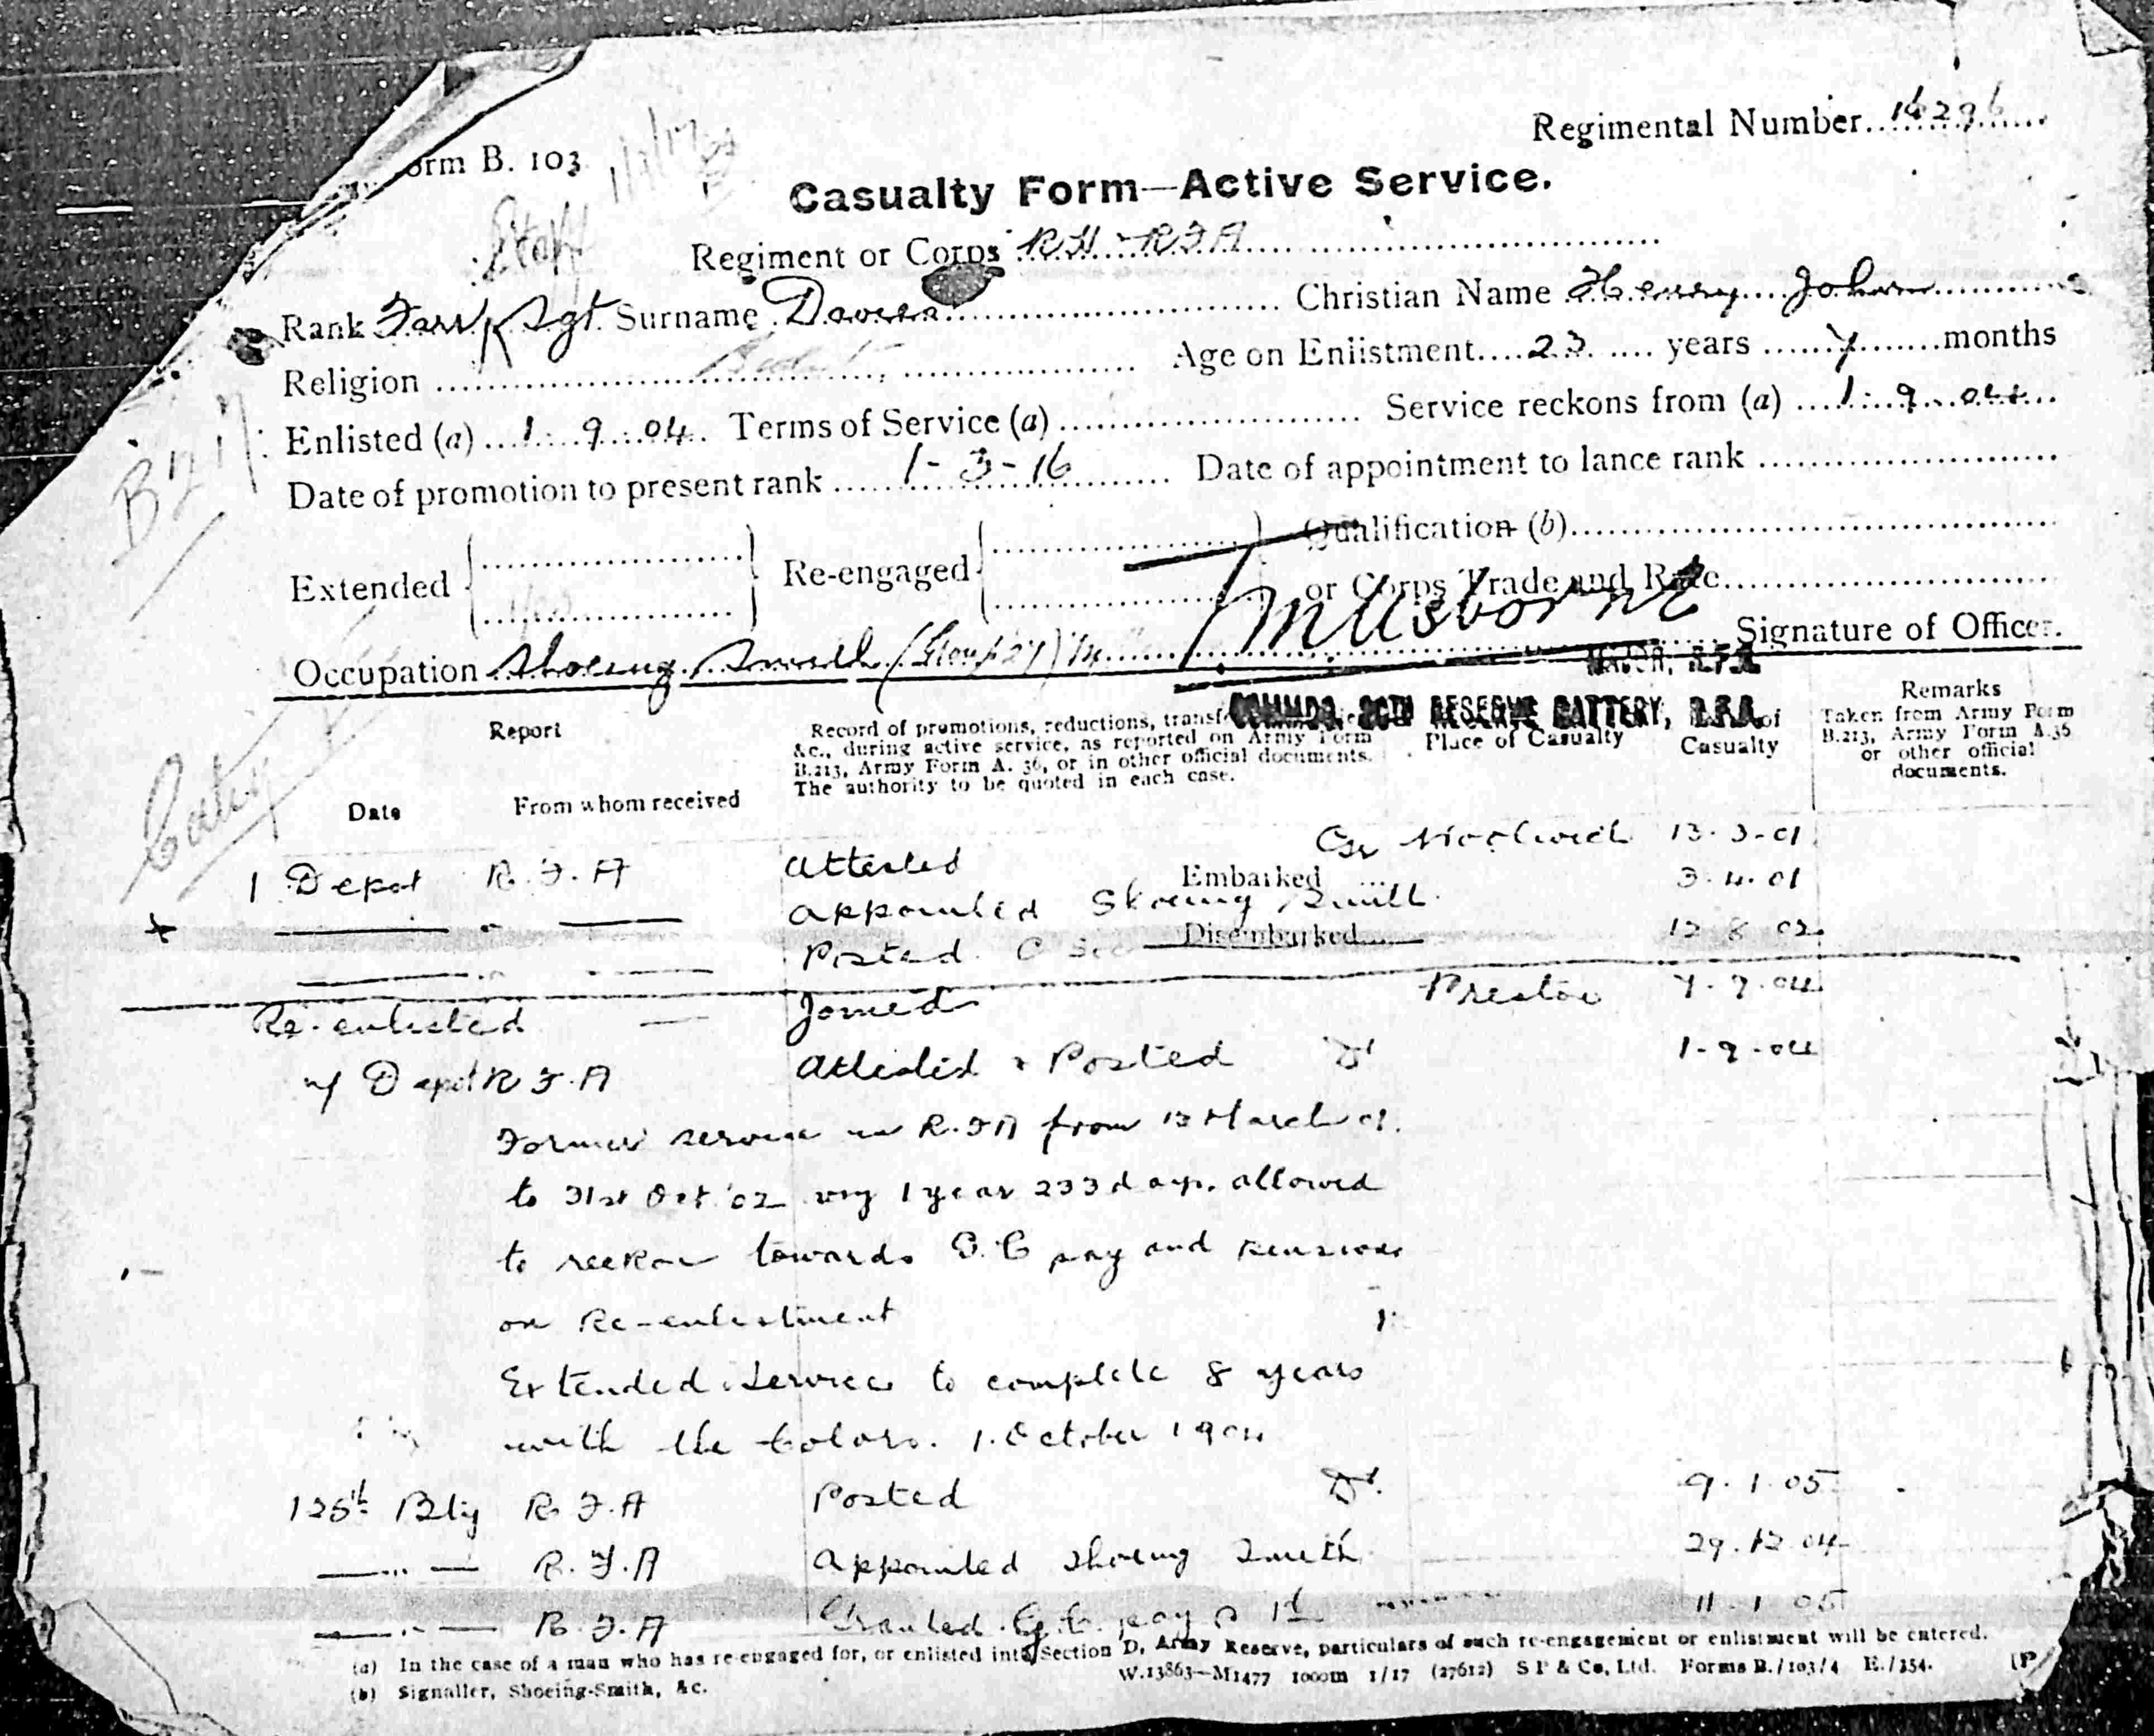 orm B. 103
Regimental Number
Casualty Form—Active Service.
Staff
Regiment or Corps RH & RFA
Rank Farr Sgt. Surname Christian Name Henry John
Religion Age on Enlistment 23 years 7 months
Enlisted (a) 1. 9. 04. Terms of Service (a) Service reckons from (a) 1. 9. 04
Date of promotion to present rank 1-3-16 Date of appointment to lance rank
Extended Re-engaged Qualification (b)
or Corps Trade and Rate
Occupation Shoeing Smith Signature of Officer.
MAJOR, R.F.A.
COMMDG. RESERVE BATTERY, R.F.A.
Report
Date
From whom received
Record of promotions, reductions, transfers,
&c., during active service, as reported on Army Form
B.213, Army Form A. 36, or in other official documents.
The authority to be quoted in each case.
Place of Casualty
of
Casualty
Remarks
Taken from Army Form
B.213, Army Form A.36
or other official
documents.
1 Depot R.F.A Attested Woolwich 13-3-01
Embarked
Appointed Shoeing Smith 3.4.01
Disembarked
Posted 12 8 02
Re-enlisted Joined Preston
Depot R F.A Attested & Posted Dr 1-9-04
Former service in R.F.A from 13 March 01.
to 31st Oct '02 1 year 233 days. allowed
to reckon towards G.C pay and Pension
on Re-enlistment
Extended Service to complete 8 years
with the Colors. 1. October 1904
Bty R.F.A Posted Dr. 9.1.05
R.F.A Appointed Shoeing Smith 29.12.04
R.F.A Granted G.C. pay 11.1.05
(a) In the case of a man who has re-engaged for, or enlisted into Section D, Army Reserve, particulars of such re-engagement or enlistment will be entered.
(b) Signaller, Shoeing-Smith, &c.
W.13863—M1477 1000m 1/17 (27612) S P & Co., Ltd. Forms B./103/4 E./354.